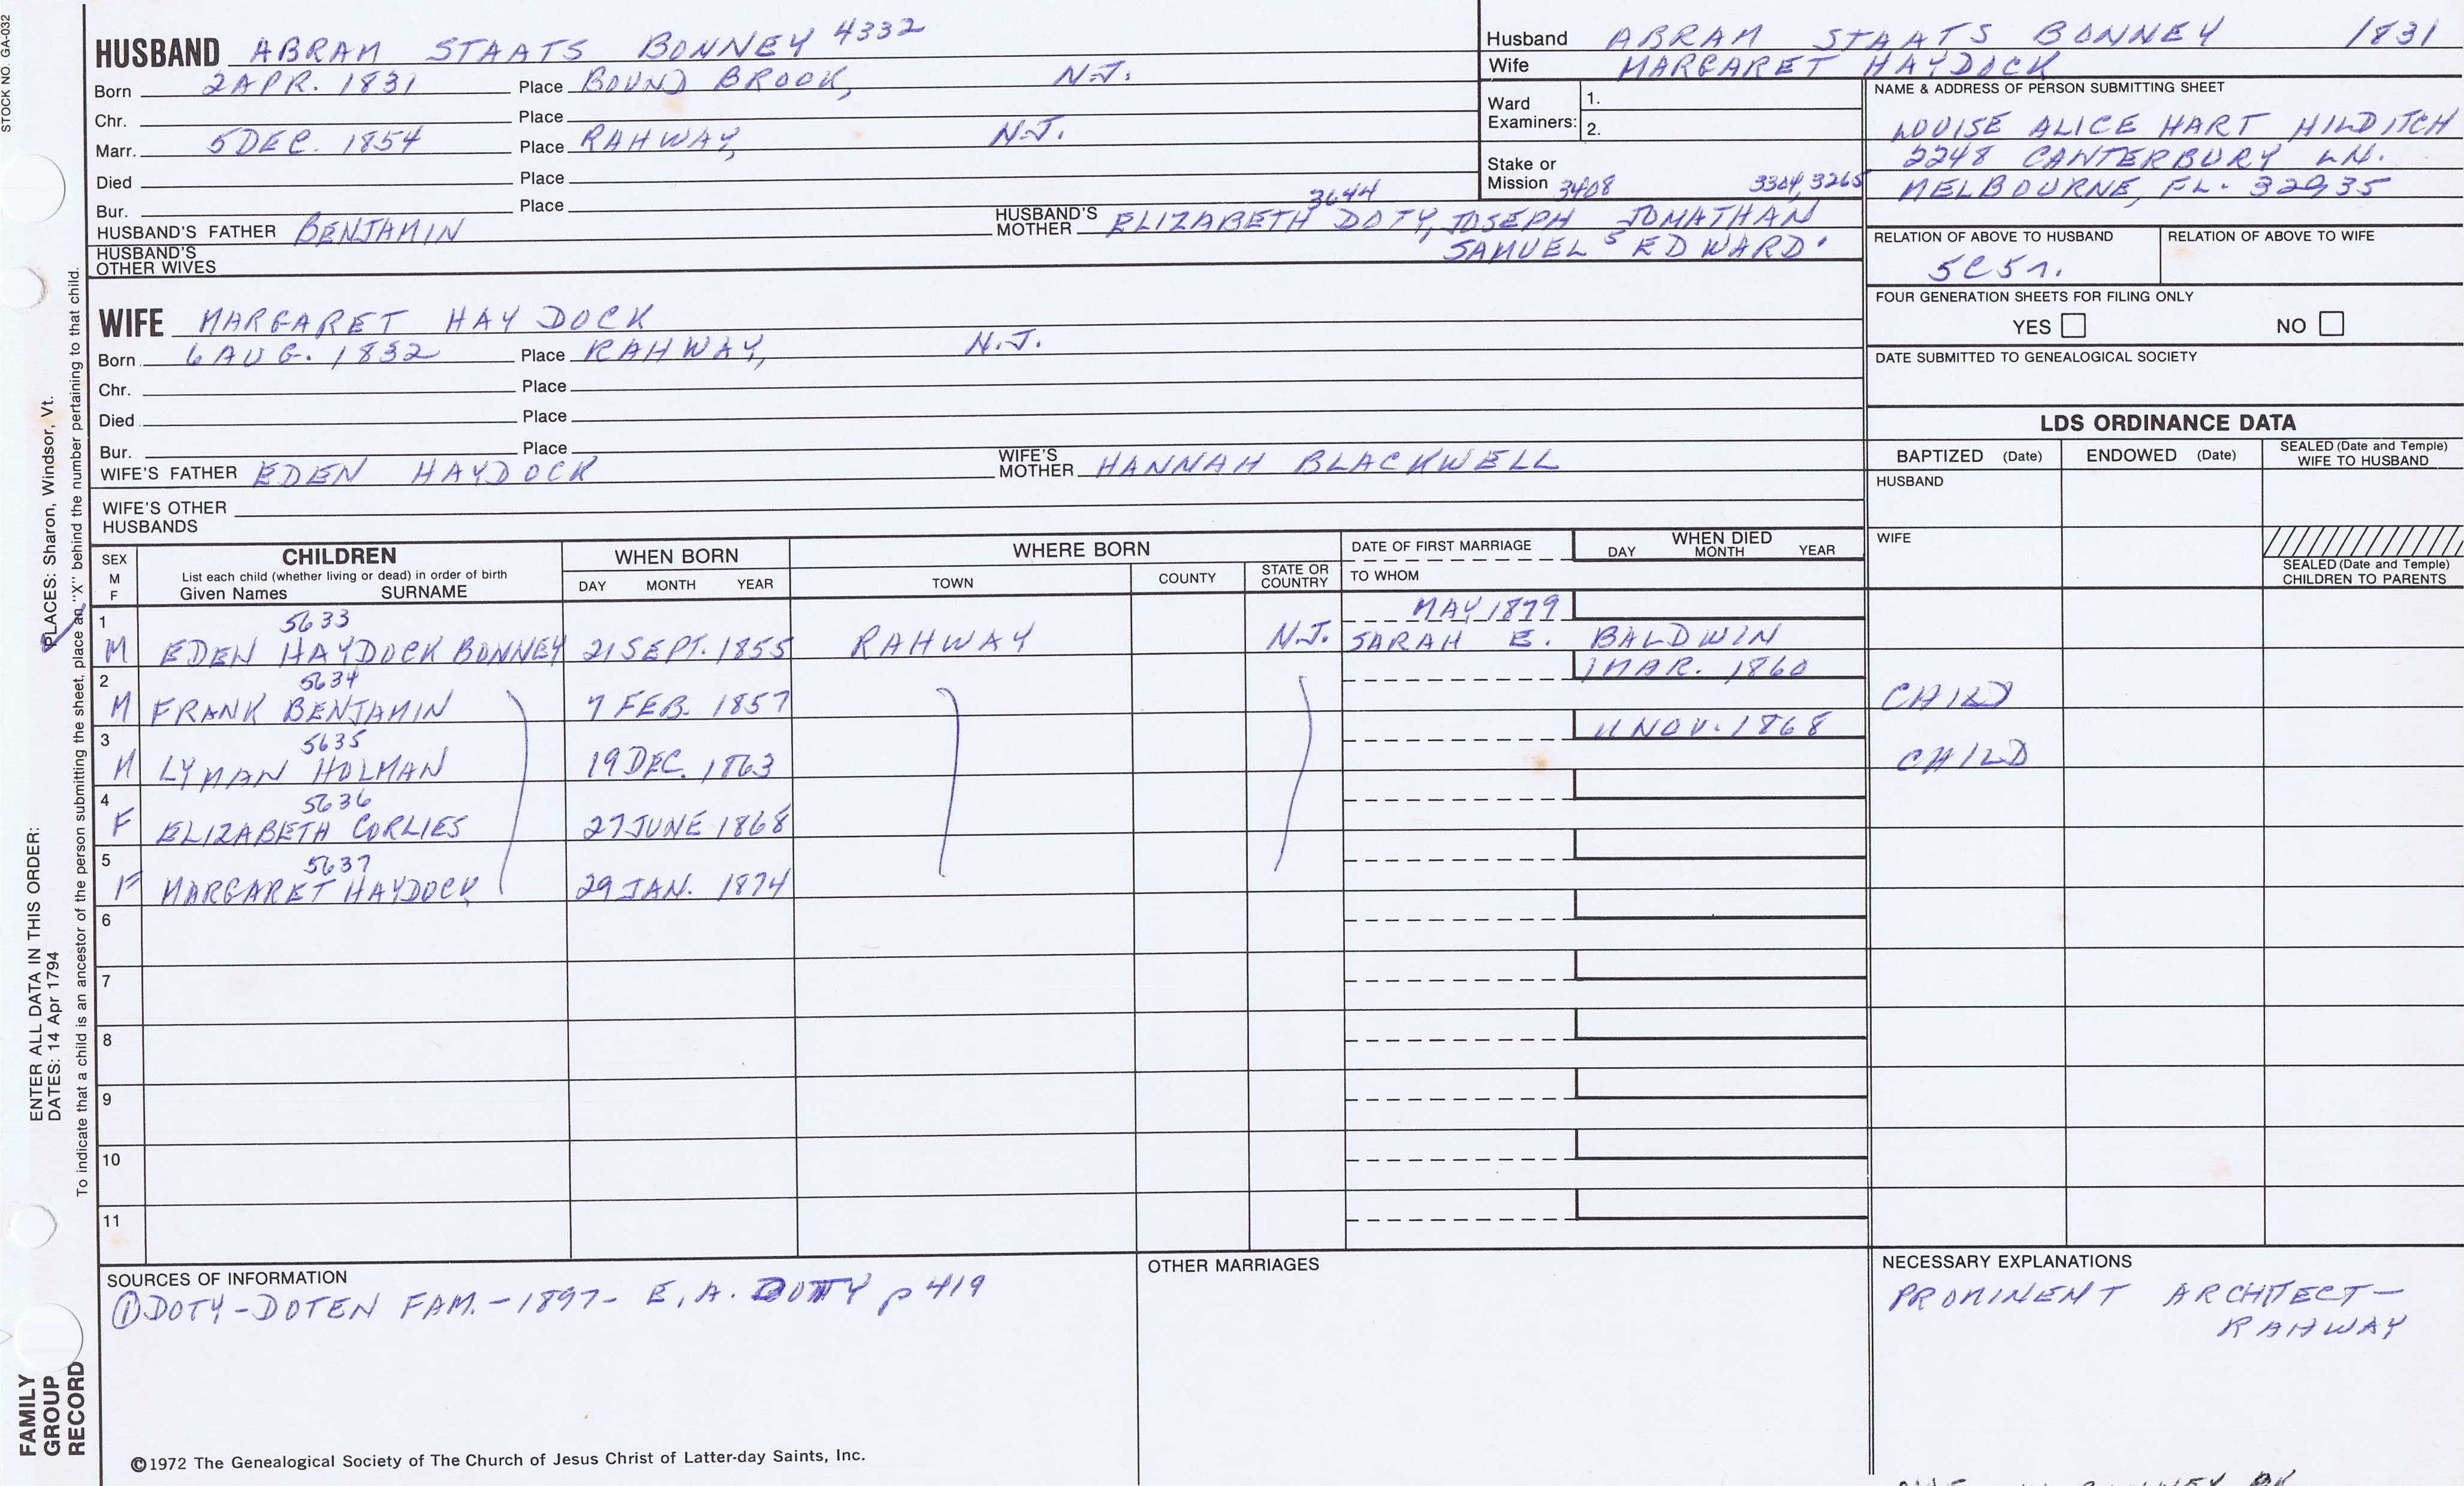 STOCK NO. GA-032
HUSBAND ABRAM STAATS BONNEY 4332
Born 2 APR. 1831 Place BOUND BROOK, N.J.
Chr. Place
Marr. 5 DEC. 1854 Place RAHWAY, N.J.
Died Place
Bur. Place
HUSBAND'S FATHER BENJAMIN HUSBAND'S MOTHER ELIZABETH DOTY, JOSEPH JONATHAN
3644 3408 3304, 3265
SAMUEL 5 EDWARD'
HUSBAND'S OTHER WIVES
WIFE MARGARET HAYDOCK
Born 6 AUG. 1832 Place RAHWAY, N.J.
Chr. Place
Died Place
Bur. Place
WIFE'S FATHER EDEN HAYDOCK WIFE'S MOTHER HANNAH BLACKWELL
WIFE'S OTHER HUSBANDS
Husband ABRAM STAATS BONNEY 1831
Wife MARGARET HAYDOCK
Ward Examiners: 1.
2.
Stake or Mission
NAME & ADDRESS OF PERSON SUBMITTING SHEET
LOUISE ALICE HART HILDITCH
2248 CANTERBURY LN.
MELBOURNE, FL. 32935
RELATION OF ABOVE TO HUSBAND RELATION OF ABOVE TO WIFE
5C5r.
FOUR GENERATION SHEETS FOR FILING ONLY
YES NO
DATE SUBMITTED TO GENEALOGICAL SOCIETY
LDS ORDINANCE DATA
BAPTIZED (Date) ENDOWED (Date) SEALED (Date and Temple) WIFE TO HUSBAND
HUSBAND
WIFE
SEALED (Date and Temple) CHILDREN TO PARENTS
SEX M F CHILDREN List each child (whether living or dead) in order of birth Given Names SURNAME
WHEN BORN DAY MONTH YEAR
WHERE BORN TOWN COUNTY STATE OR COUNTRY
DATE OF FIRST MARRIAGE TO WHOM
WHEN DIED DAY MONTH YEAR
1 5633 MAY 1879
M EDEN HAYDOCK BONNEY 21 SEPT. 1855 RAHWAY N.J. SARAH E. BALDWIN
2 5634 1 MAR. 1860
M FRANK BENJAMIN 7 FEB. 1857 CHILD
3 5635 11 NOV. 1868
M LYMAN HOLMAN 19 DEC. 1863 CHILD
4 5636
F ELIZABETH CORLIES 27 JUNE 1868
5 5637
F MARGARET HAYDOCK 29 JAN. 1874
6
7
8
9
10
11
SOURCES OF INFORMATION
① DOTY-DOTEN FAM. - 1897 - E. A. DOTY p 419
OTHER MARRIAGES
NECESSARY EXPLANATIONS
PROMINENT ARCHITECT -
RAHWAY
©1972 The Genealogical Society of The Church of Jesus Christ of Latter-day Saints, Inc.
FAMILY GROUP RECORD
ENTER ALL DATA IN THIS ORDER:
DATES: 14 Apr 1794
PLACES: Sharon, Windsor, Vt.
To indicate that a child is an ancestor of the person submitting the sheet, place an "X" behind the number pertaining to that child.